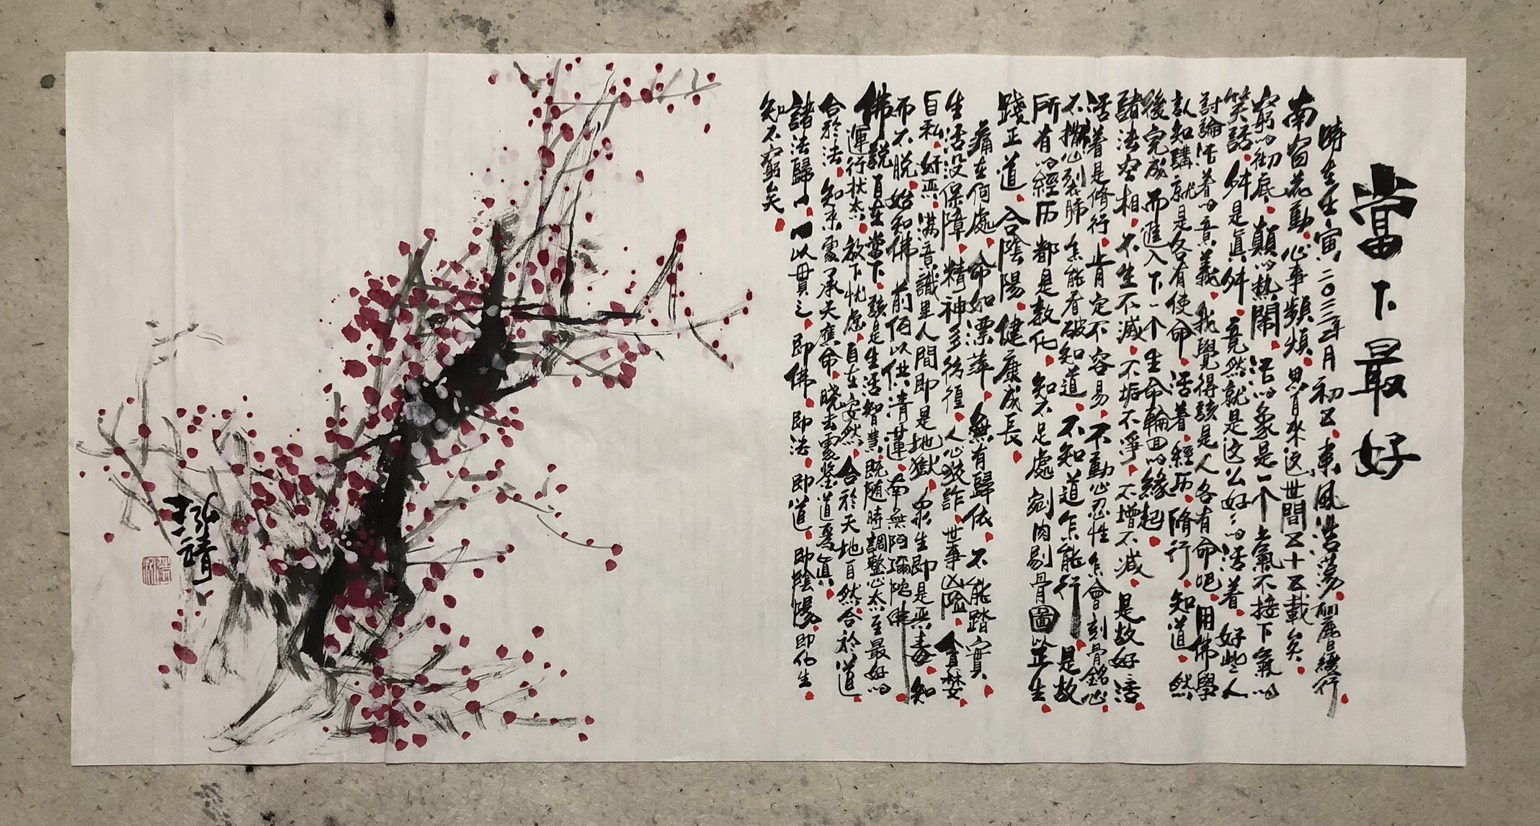 當下最好
時在壬寅、二〇二三年月初五、東風浩荡、麗日緩行、
南窗花動、心事頻頻、思自来這世間五十五載矣、
窮的彻底、顛的熱鬧、活的象是一个上氣不接下氣的
笑話、舛是真舛、竟然就是这么好好的活着、好些人
討論活着的意義、我覺得該是人各有命吧、用佛學
認知講就是各有使命、活着、經历、脩行、知道、然
後完成、而進入下一个生命輪回的緣起、
諸法空相、不生不滅、不垢不淨、不增不减、是故好活、
活着是脩行、肯定不容易、不動心忍性怎會刻骨銘心
不撕心裂肺怎能看破知道、不知道怎能行、是故
所有的經历都是教化、知不足處剜肉剔骨圖益生、
踐正道、合陰陽、健康成長、
痛在何處、命如漂萍、無有歸依、不能踏實、
生活没保障、精神多彷徨、人心狡詐、世事凶險、貪婪
自私、奸恶、满意識里人間即是地獄、衆生即是恶毒、知
而不脱、始知佛前何以供清蓮、南無阿彌陀佛、
佛説自在當下、該是生活智慧既随時調整心态至最好的
運行状态、放下忧虑、自在安然、合於天地自然、合於道、
合於法、知来處承天應命、曉去處鉴道焉真、
諸法歸一、一以貫之、即佛、即法、即道、即陰陽、即化生、
知不窮矣、